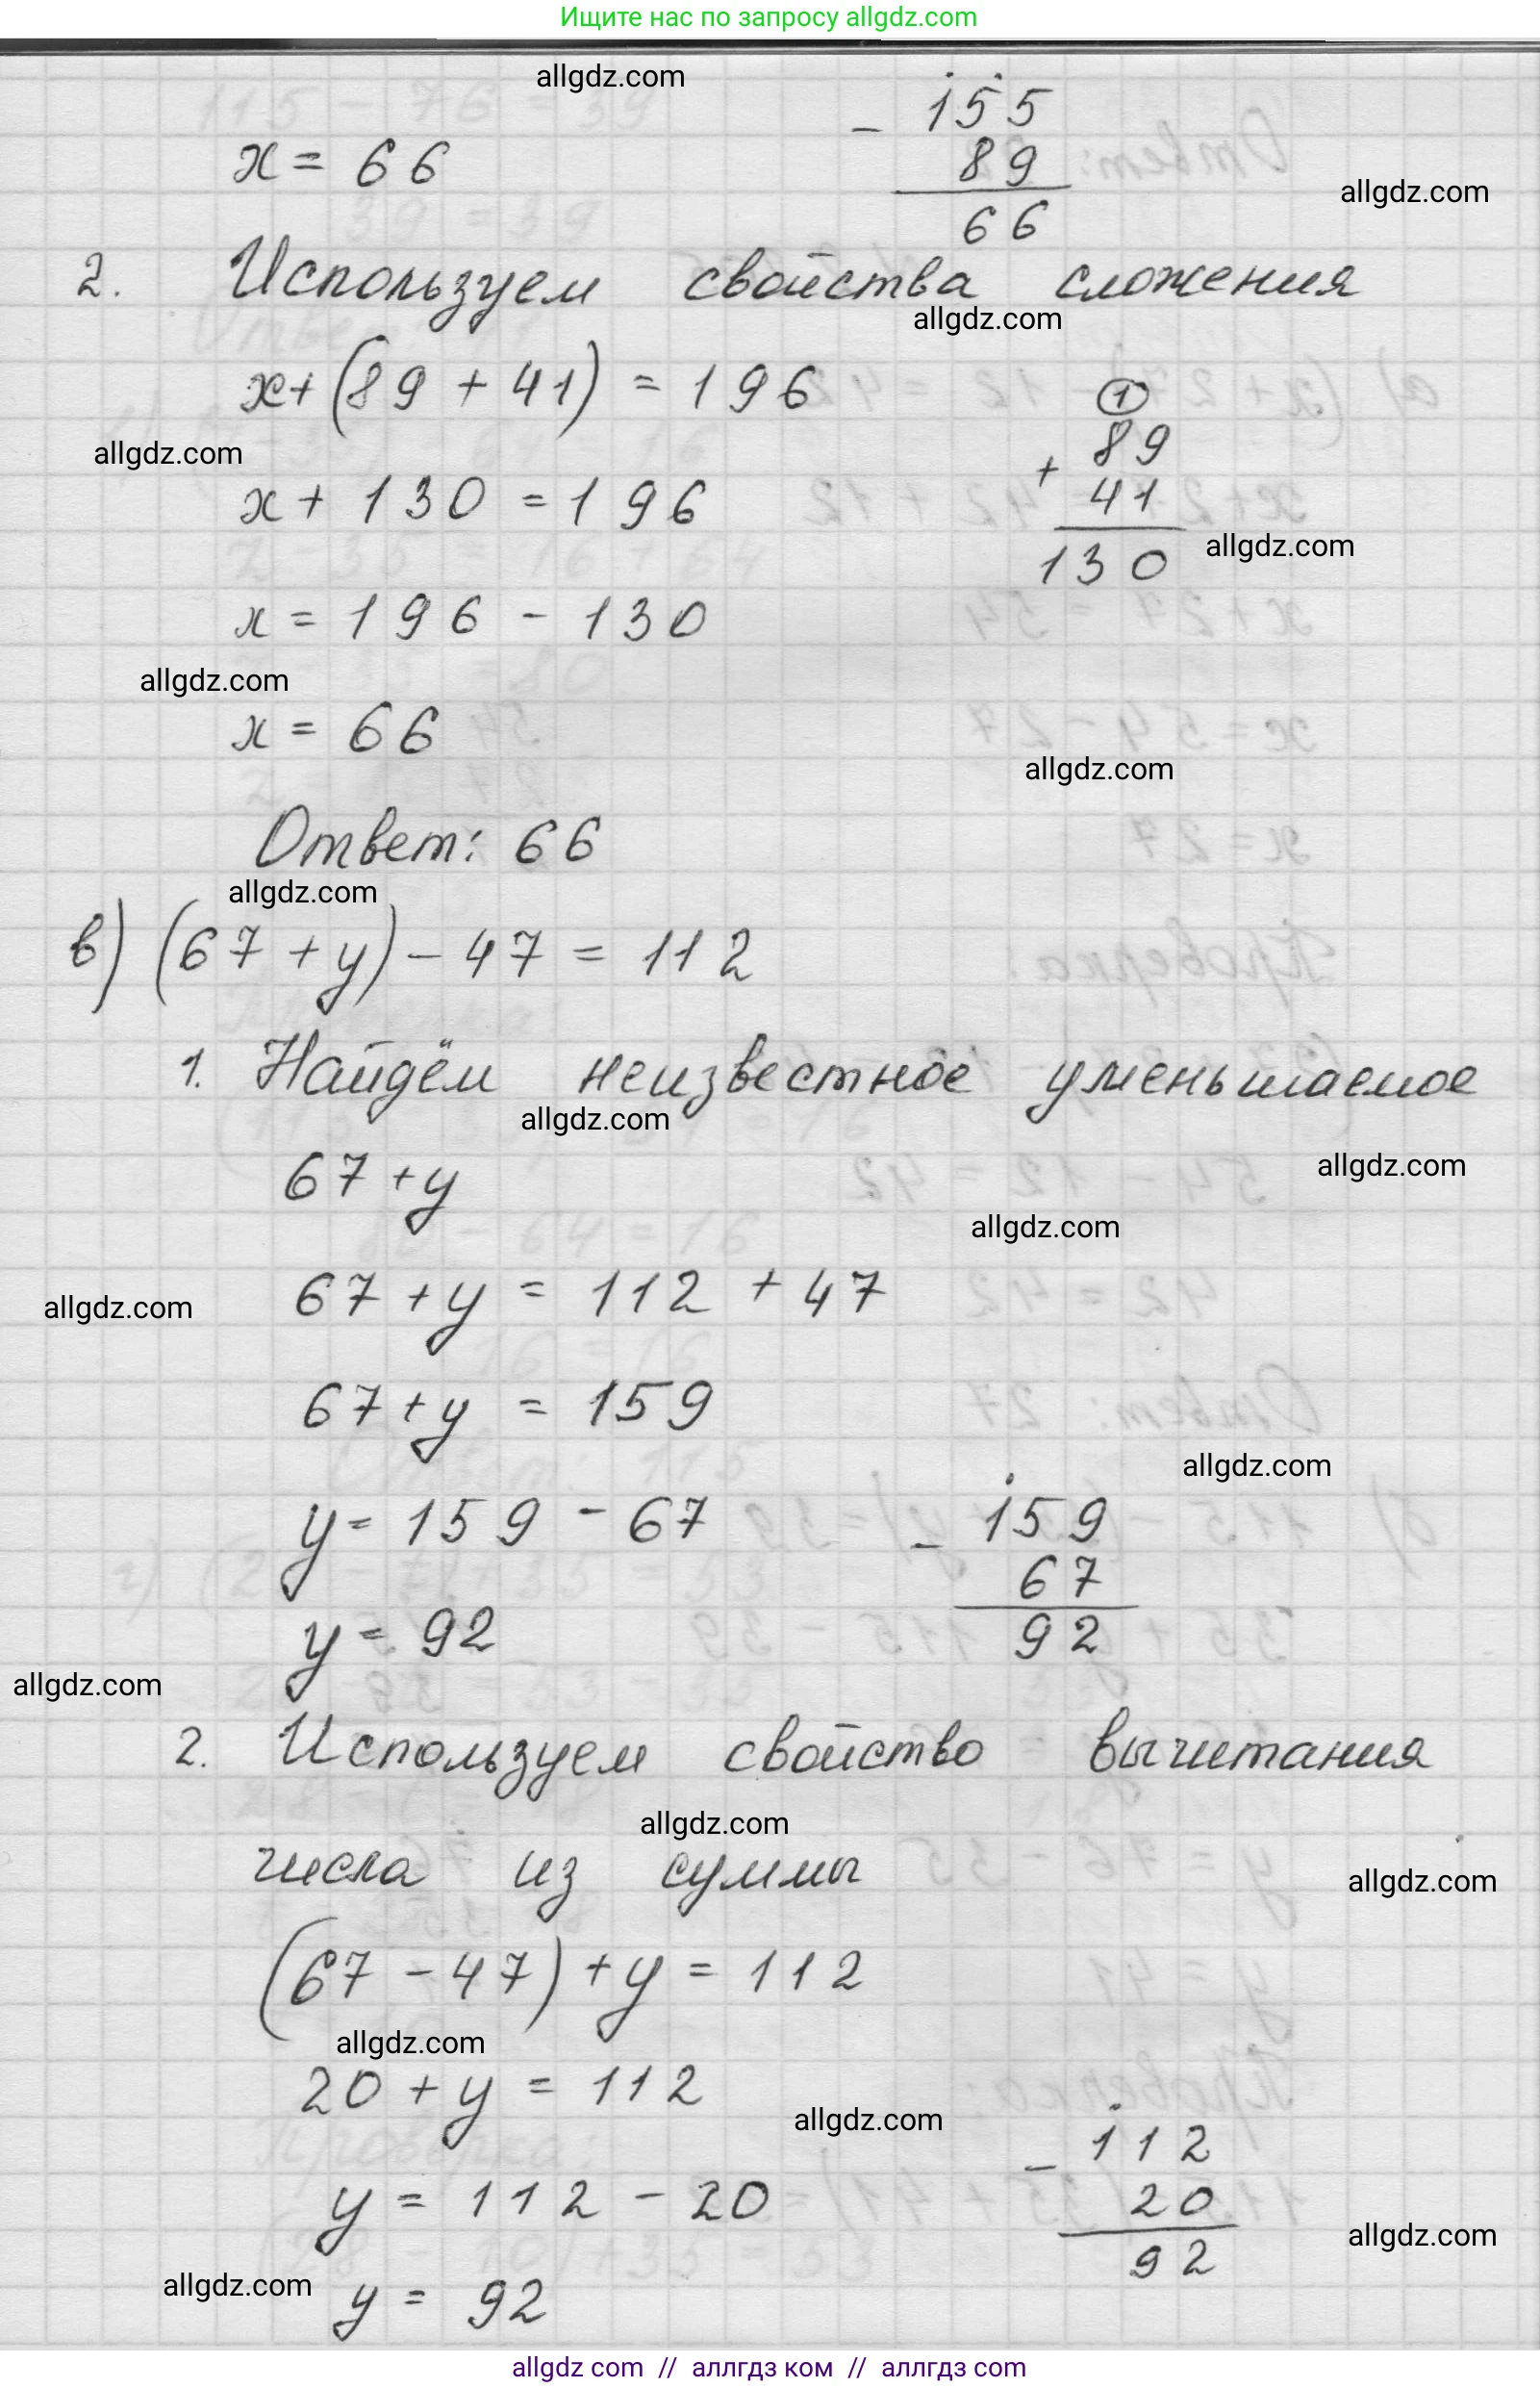 Ищите нас по запросу allgdz.com
allgdz.com
x = 66
− 155
89
66
allgdz.com
2. Используем свойства сложения
allgdz.com
x+(89 + 41) = 196
1
+ 89
41
130
allgdz.com
x + 130 = 196
allgdz.com
x = 196 - 130
allgdz.com
x = 66
allgdz.com
Ответ: 66
allgdz.com
в) (67 + y) - 47 = 112
1. Найдём неизвестное уменьшаемое
allgdz.com
67 + y
allgdz.com
allgdz.com
67 + y = 112 + 47
allgdz.com
67 + y = 159
allgdz.com
y = 159 - 67
− 159
67
92
y = 92
allgdz.com
2. Используем свойство вычитания
allgdz.com
числа из суммы
allgdz.com
(67 - 47) + y = 112
allgdz.com
20 + y = 112
allgdz.com
− 112
20
92
y = 112 - 20
allgdz.com
allgdz.com
y = 92
allgdz com // аллгдз ком // аллгдз com